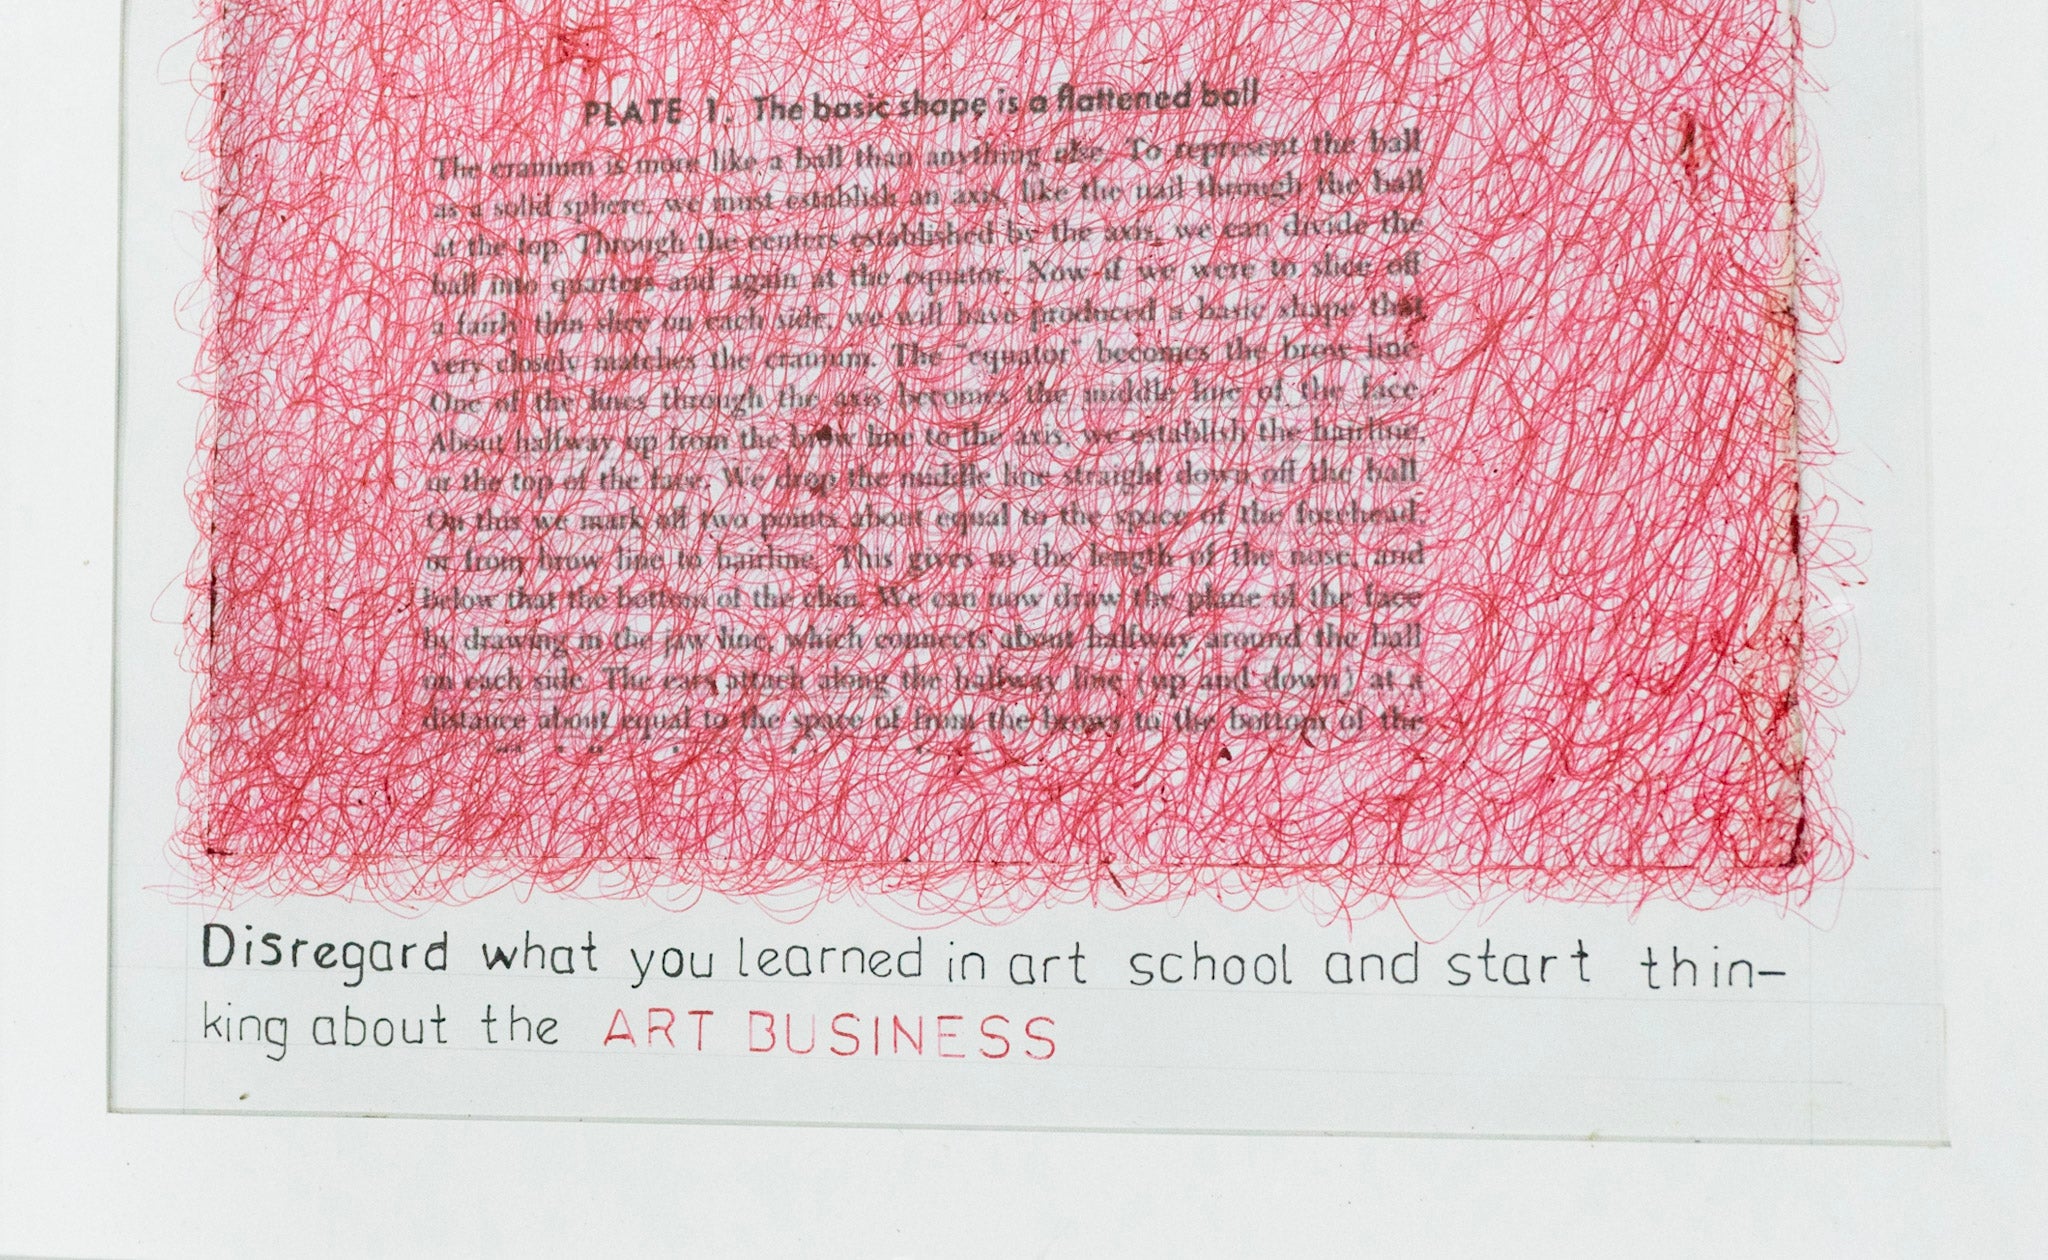 PLATE 1. The basic shape is a flattened ball
The cranium is more like a ball than anything else. To represent the ball
as a solid sphere, we must establish an axis, like the nail through the ball
at the top. Through the centers established by the axis, we can divide the
ball into quarters and again at the equator. Now if we were to slice off
a fairly thin slice on each side, we will have produced a basic shape that
very closely matches the cranium. The "equator" becomes the brow line.
One of the lines through the axis becomes the middle line of the face.
About halfway up from the brow line to the axis, we establish the hairline,
or the top of the face. We drop the middle line straight down off the ball.
On this we mark off two points about equal to the space of the forehead,
or from brow line to hairline. This gives us the length of the nose, and
below that the bottom of the chin. We can now draw the plane of the face
by drawing in the jaw line, which connects about halfway around the ball
on each side. The ears attach along the halfway line (up and down) at a
distance about equal to the space of from the brows to the bottom of the
Disregard what you learned in art school and start thin-
king about the ART BUSINESS